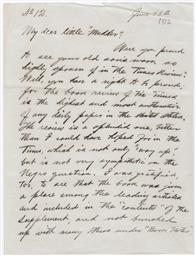 No 12.
June 26th
1912
My dear little "Mudder":
Were you proud
to see your old son's work so
highly spoken of in the Times Review?
Well, you have a right to be proud,
for the book review of the Times
is the highest and most authoritative
of any daily paper in the United States.
The review is a splendid one, better
than I could have hoped for in the
Times, which is not only "way up"
but is not very sympathetic on the
Negro question. I was gratified,
too, to see that the book was given
a place among the leading articles
and included in the "contents" of the
Supplement, and not bunched
up with many others under "Book Notes"